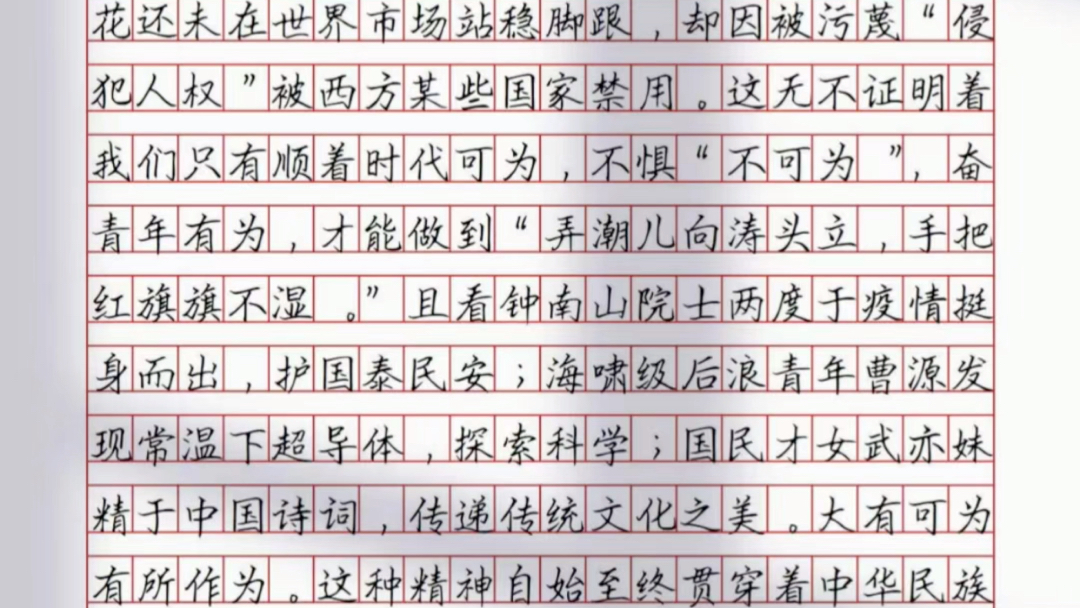 花还未在世界市场站稳脚跟，却因被污蔑“侵
犯人权”被西方某些国家禁用。这无不证明着
我们只有顺着时代可为，不惧“不可为”，奋
青年有为，才能做到“弄潮儿向涛头立，手把
红旗旗不湿。”且看钟南山院士两度于疫情挺
身而出，护国泰民安；海啸级后浪青年曹源发
现常温下超导体，探索科学；国民才女武亦妹
精于中国诗词，传递传统文化之美。大有可为
有所作为。这种精神自始至终贯穿着中华民族